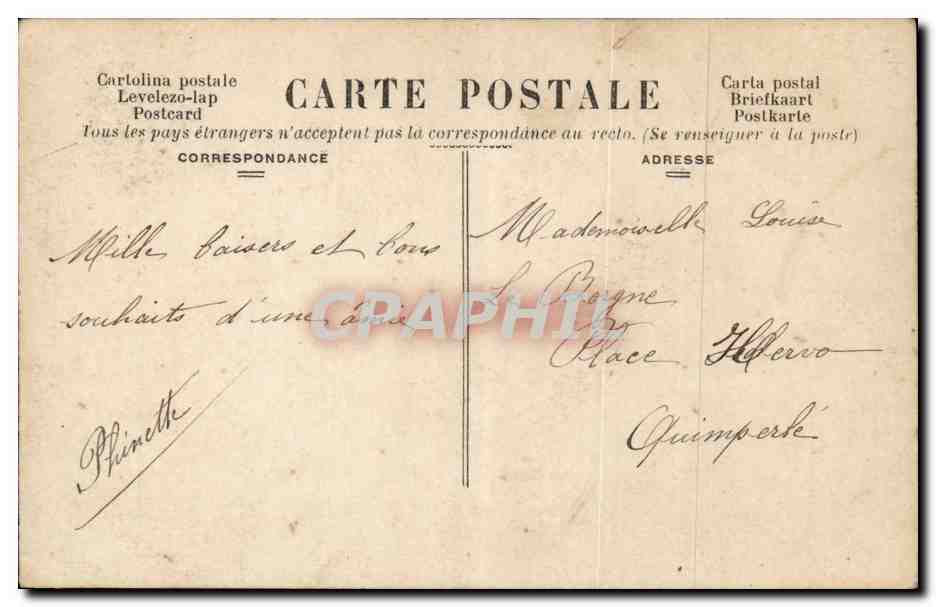 Cartolina postale
Levelezo-lap
Postcard
CARTE POSTALE
Carta postal
Briefkaart
Postkarte
Tous les pays étrangers n'acceptent pas la correspondance au recto. (Se renseigner à la poste)
CORRESPONDANCE
Mille baisers et bons
souhaits d'une amie
Phinette
ADRESSE
Mademoiselle Louise
Le Borgne
Place Hervo
Quimperlé
CPARPHIL